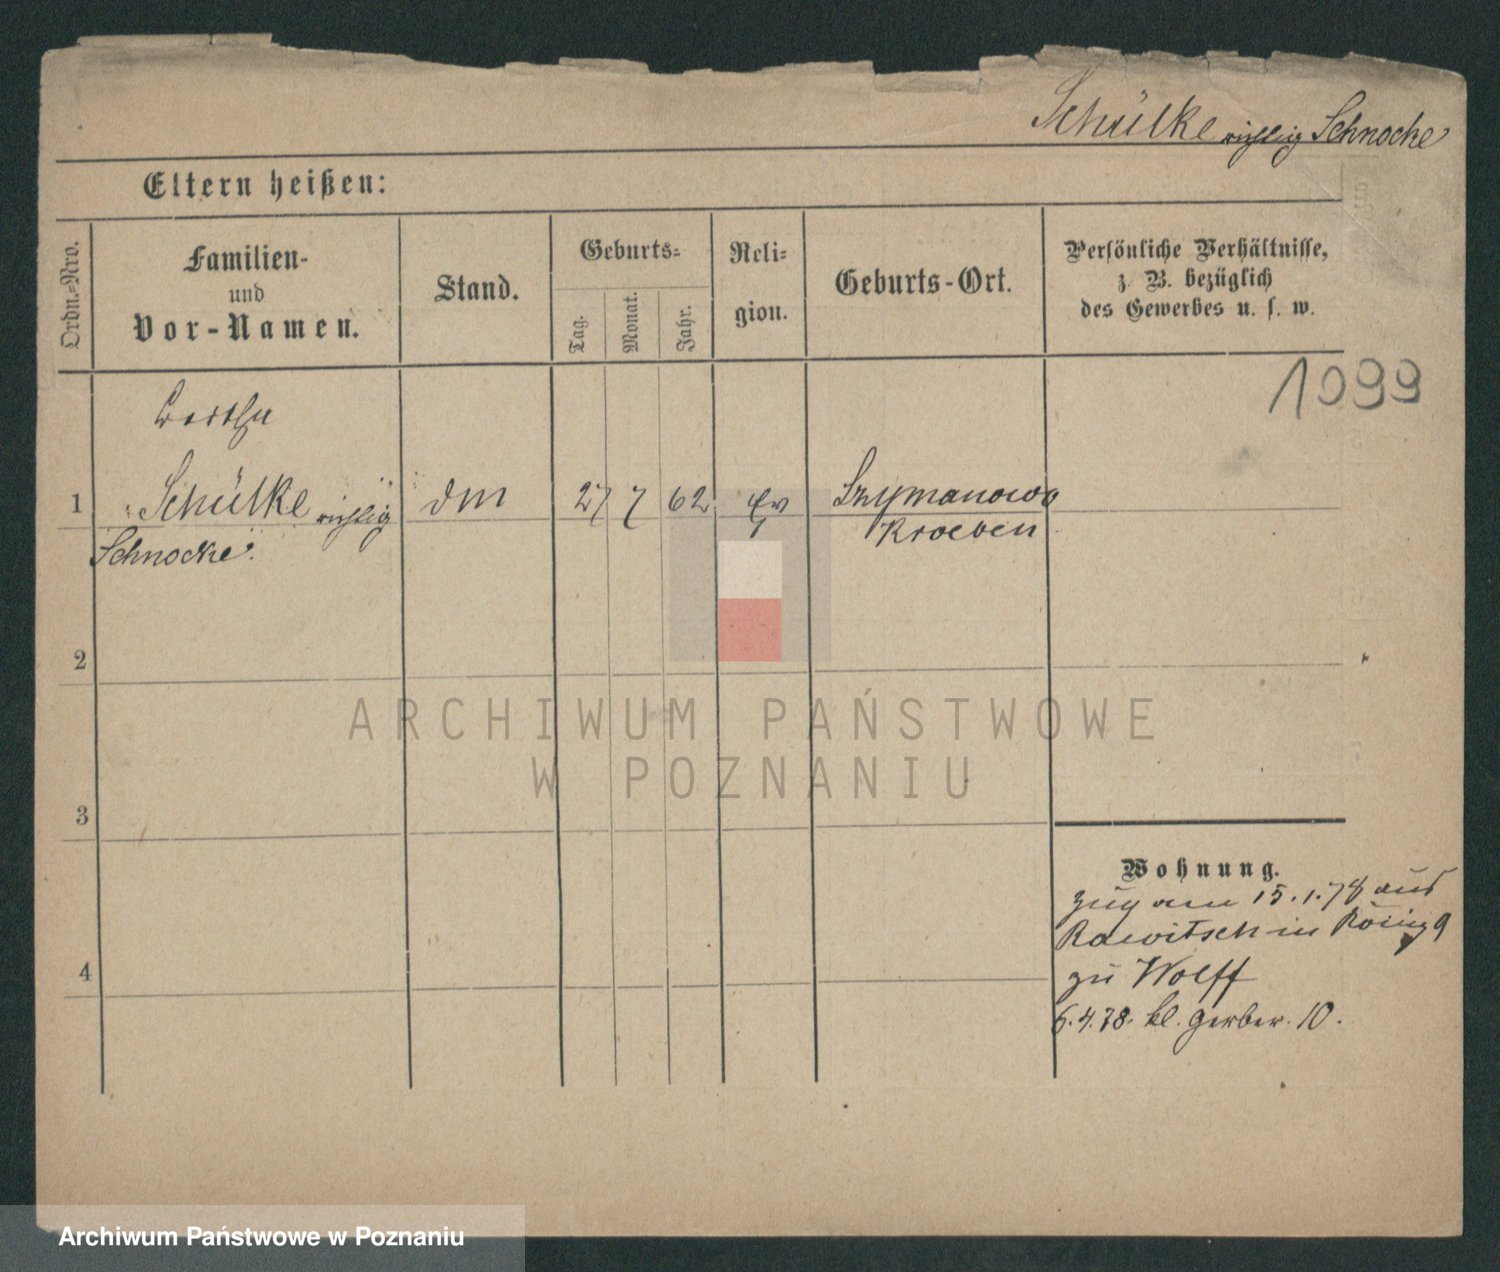 Schülke richtig Schnocke
Eltern heißen:
Ordn.-Nro.
Familien-
und
Vor-Namen.
Stand.
Geburts-
Tag.
Monat.
Jahr.
Reli-
gion.
Geburts-Ort.
Persönliche Verhältnisse,
z. B. bezüglich
des Gewerbes u. s. w.
1099
Bertha
1 Schülke richtig dm 27 7 62 Ev Szymanowo
Schnocke. Kroeben
2
3
4
ARCHIWUM PAŃSTWOWE
W POZNANIU
Wohnung.
zug am 15.1.78 aus
Rawitsch in
zu Wolff
6.4.78. kl. Gerber. 10.
Archiwum Państwowe w Poznaniu